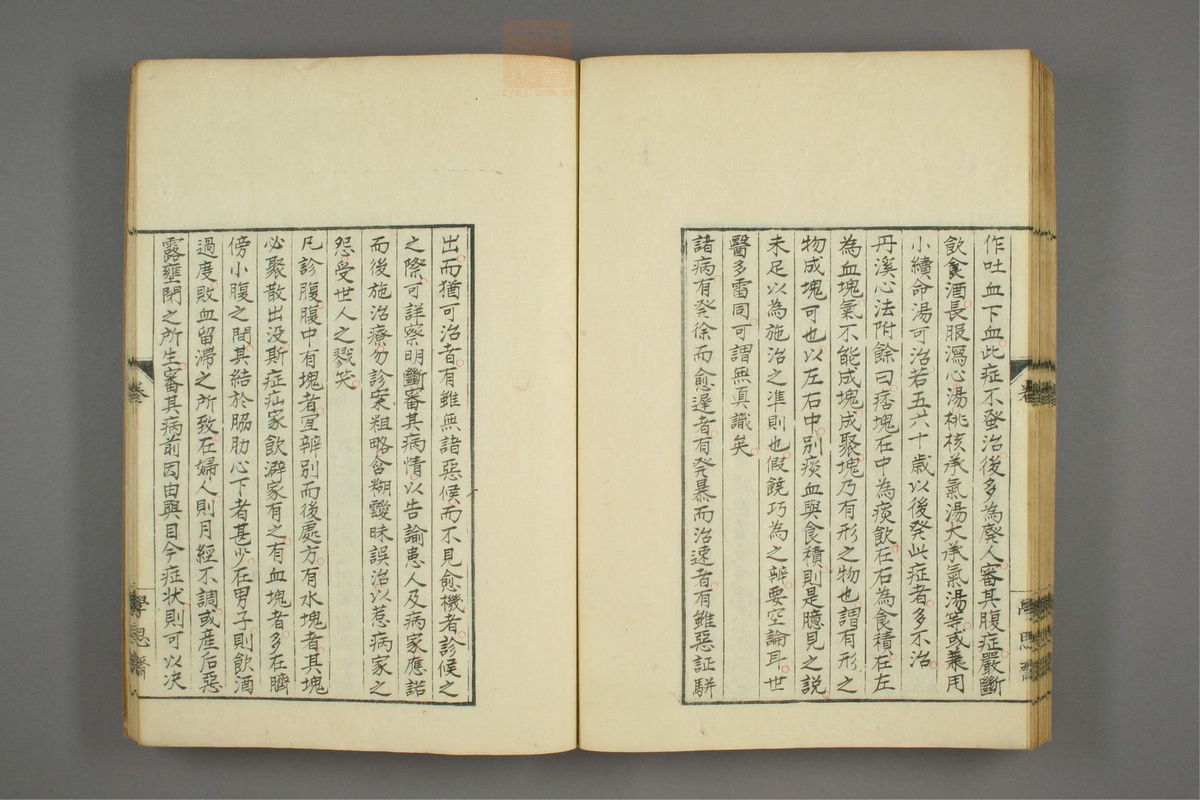 作吐血下血此症不蚤治後多為廢人審其腹症嚴斷
飲食酒長服瀉心湯桃核承氣湯大承氣湯等或兼用
小續命湯可治若五六十歲以後癹此症者多不治
丹溪心法附餘曰痞塊在中為痰飲在右為食積在左
為血塊氣不能成塊成聚塊乃有形之物也謂有形之
物成塊可也以左右中別痰血與食積則是臆見之説
未足以為施治之準則也假饒巧為之辨要空論耳世
醫多雷同可謂無真識矣
諸病有癹徐而愈遲者有癹暴而治速者有雖惡証駢
出而猶可治者有雖無諸惡候而不見愈機者診候之
之際可詳察明斷審其病情以告諭患人及病家應諾
而後施治療勿診案粗略含糊靉昧誤治以惹病家之
怨受世人之戮笑
凡診腹腹中有塊者宜辨別而後處方有水塊者其塊
必聚散出没斯症疝家飲澼家有之有血塊者多在臍
傍小腹之間其結於脇肋心下者甚少在男子則飲酒
過度敗血留滯之所致在婦人則月經不調或産后惡
露壅閉之所生審其病前因由與目今症状則可以决
卷
學思齋